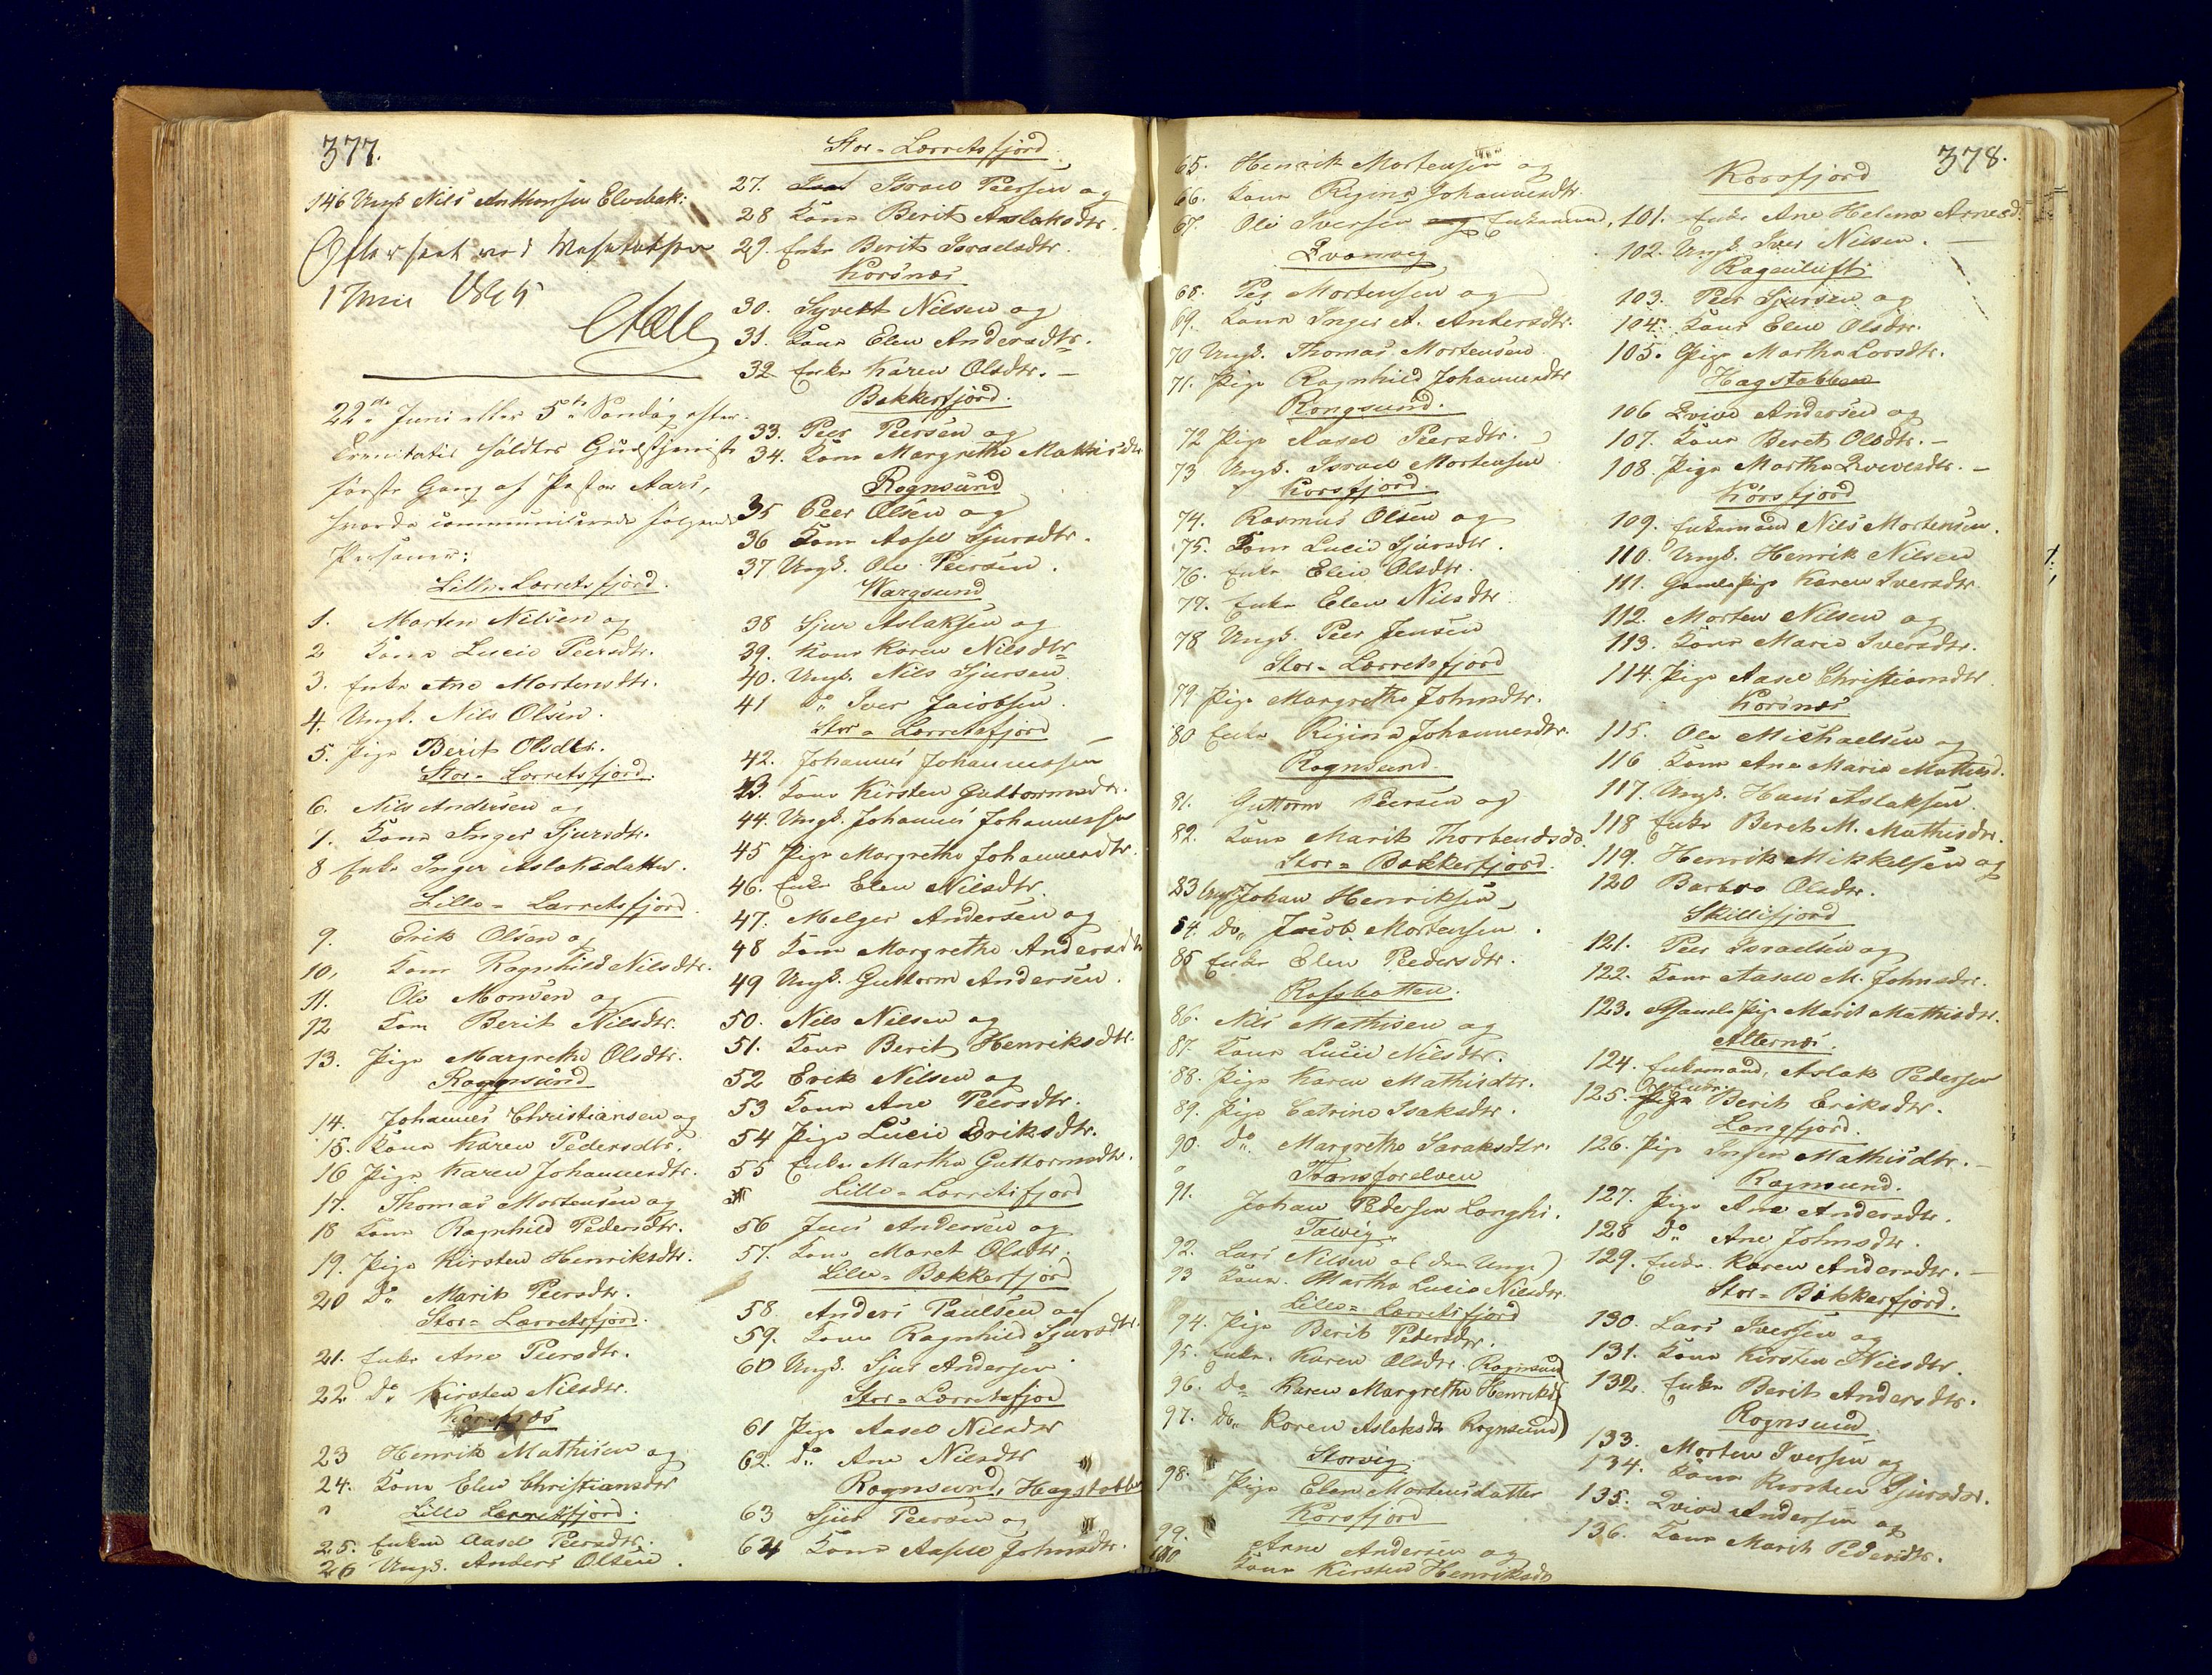 377.
146 Ungk. Nils Anthonsen Elvebak:
Efterseet ved Visitatsen
1 Juni 1845
22de Juni eller 5te Søndag efter
Trinitatis holdtes Gudstjeneste
første Gang af Pastor Aars,
hvorda communicerede følgende
Personer:
Lille-Lerretsfjord.
1. Morten Nilsen og
2 Kone Lucie Peersdtr.
3. Enke Ane Mortensdtr.
4. Ungk. Nils Olsen.
5. Pige Berit Olsdtr.
Stor-Lerretsfjord.
6. Nils Andersen og
7. Kone Inger Sjursdtr.
8 Enke Inger Aslaksdatter.
Lille-Lerretsfjord.
9. Erik Olsen og
10. Kone Ragnhild Nilsdtr.
11. Ole Monsen og
12 Kone Berit Nilsdtr.
13. Pige Margrethe Olsdtr.
Rognsund
14. Johannes Christiansen og
15. Kone Karen Pedersdtr.
16 Pige Karen Johannesdtr.
17. Thomas Mortensen og
18 Kone Ragnhild Pedersdtr.
19. Pige Kirsten Henriksdtr.
20 Do Marit Peersdtr.
Stor-Lerretsfjord.
21. Enke Ane Peersdtr.
22 Do Kirsten Nilsdtr.
Korsnæs
23 Henrik Mathisen og
24. Kone Elen Christiansdtr
Lille Lerretsfjord.
25. Enken Aasel Peersdtr.
26 Ungk. Anders Olsen.
Stor-Lerretsfjord.
27. Israel Peersen og
28 Kone Berit Aslaksdtr.
29. Enke Berit Israelsdtr.
Korsnæs
30. Syvert Nilsen og
31. Kone Elen Andersdtr.
32 Enke Karen Olsdtr. –
Bekkerfjord.
33. Peer Peersen og
34. Kone Margrethe Mathisdtr
Rognsund
35 Peer Olsen og
36 Kone Aasel Sjursdtr.
37 Ungk. Ole Peersen.
Wargsund
38 Sjur Aslaksen og
39. Kone Karen Nilsdtr
40. Ungk. Nils Sjursen.
41 Do Iver Jacobsen.
Stor-Lerretsfjord
42. Johannes Johannessen
43. Kone Kirsten Guttormsdtr.
44. Ungk. Johannes Johannessen
45 Pige Margrethe Johannesdtr.
46. Enke Elen Nilsdtr.
47. Melger Andersen og
48 Kone Margrethe Andersdtr
49 Ungk. Guttorm Andersen.
50. Nils Nilsen og
51. Kone Berit Henriksdtr.
52 Erik Nilsen og
53 Kone Ane Peersdtr.
54 Pige Lucie Eriksdtr.
55 Enke Martha Guttormsdtr.
Lille-Lerretsfjord
56 Jens Andersen og
57. Kone Maret Olsdtr.
Lille-Bekkerfjord
58 Anders Paulsen og
59. Kone Ragnhild Sjursdtr.
60 Ungk. Sjur Andersen
Stor-Lerretsfjor
61 Pige Aasel Nilsdtr
62. Do Ane Nilsdtr
Rognsund, Hagstabben
63 Sjur Peersen og
64 Kone Aasele Johnsdtr.
65. Henrik Mortensen og
66. Kone Regine Johannesdtr.
67. Ole Iversen og Enkemand,
Qvanvig
68. Per Mortensen og
69. Kone Inger A. Andersdtr.
70 Ungk. Thomas Mortensen
71. Pige Ragnhild Johannesdtr
Rongsund.
72 Pige Aasel Peersdtr.
73 Ungk. Israel Mortensen
Korsfjord.
74. Rasmus Olsen og
75. Kone Lucie Sjursdtr.
76. Enke Elen Olsdtr.
77. Enke Elen Nilsdtr.
78 Ungk. Peer Jensen
Stor-Lerretsfjord
79 Pige Margrethe Johnsdtr.
80 Enke Rigina Johannesdtr.
Rognsund.
81. Guttorm Peersen og
82. Kone Marit Thorbendsdtr.
Stor-Bekkerfjord.
83 Ungk Johan Henriksen
84. Do. Jacob Mortensen.
85 Enke Elen Peedersdtr.
Rafsbotten.
86. Nils Mathisen og
87. Kone Lucie Nilsdtr.
88. Pige Karen Mathisdtr.
89. Pige Catrine Isaksdtr.
90. Do. Margrethe Saraksdtr.
Transforelven
91. Johan Pedersen Langhi.
Talvig.
92. Lars Nilsen ol (den Unge)
93 Kone. Martha Lucie Nilsdtr.
Lille-Lerretsfjord
94. Pige Berit Pedersdtr.
95. Enke. Karen Olsdtr. Rognsund
96. Do Karen Margrethe Henriksd
97. Do. Karen Aslaksdtr Rognsund
Storvig
98. Pige Elen Mortensdatter
Korsfjord
99. Arne Andersen og
100 Kone Kirsten Henriksdtr
378.
Korsfjord
101. Enke Ane Helene Arnesd.
102. Ungk. Iver Nilsen. –
Rageuluft
103. Peer Sjursen og
104. Kone Elen Olsdtr.
105. Pige Martha Larsdtr.
Hagstabben
106 Qvive Andersen og
107. Kone Beret Olsdtr. –
108. Pige Martha Qvivesdtr. –
Korsfjord
109. Enkemand Nils Mortensen.
110. Ungk. Henrik Nilsen
111. Gamle Pige Karen Iversdtr.
112. Morten Nilsen og
113. Kone Marie Iversdtr.
114. Pige Aasel Christiansdtr.
Korsnæs
115. Ole Michaelsen og
116 Kone Ane Marie Mathisd.
117. Ungk. Hans Aslaksen.
118 Enke Bereth M. Mathisdtr.
119. Henrik Mikkelsen og
120 Barbro Olsdtr.
Skillefjord
121. Peer Israelsen og
122. Kone Aasele M. Johnsdtr.
123. Gamle Pige Marit Mathisdtr.
Alternes.
124. Enkemand, Aslak Pedersen
125. Pige Berit Eriksdtr.
Langfjord.
126. Pige Inger Mathisdtr. –
Rognsund.
127. Pige Ane Andersdtr.
128 Do Ane Johnsdtr.
129. Enke. Karen Andersdtr. –
Stor-Bekkerfjord.
130. Lars Iversen og
131. Kone Kirsten Nilsdtr.
132. Enke Berit Andersdtr.
Rognsund
133. Morten Iversen og
134. Kone Kirsten Sjursdtr.
135. Qvive Andersen og
136. Kone Marit Pedersdtr.